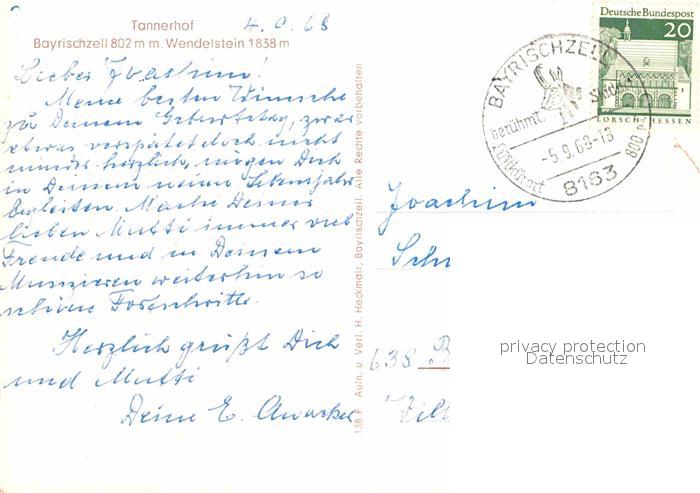 Tannerhof
Bayrischzell 802 m m. Wendelstein 1838 m
4. 9. 68
Lieber Joachim!
Meine besten Wünsche
zu Deinem Geburtstag, zwar
etwas verspätet doch nicht
minder herzlich, mögen Dich
in Deinem neuen Lebensjahr
begleiten. Mache Deiner
lieben Mutti immer viel
Freude und in Deinem
Musizieren weiterhin so
schöne Fortschritte.
Herzlich grüßt Dich
und Mutti
Deine E.
138 F Aufn. u. Verl. H. Heckmair, Bayrischzell. Alle Rechte vorbehalten
Deutsche Bundespost
20
LORSCH/HESSEN
BAYRISCHZELL
berühmt.
Luftkurort
800 m
-5.9.68-13
8163
Joachim
Sch
638 B
privacy protection
Datenschutz